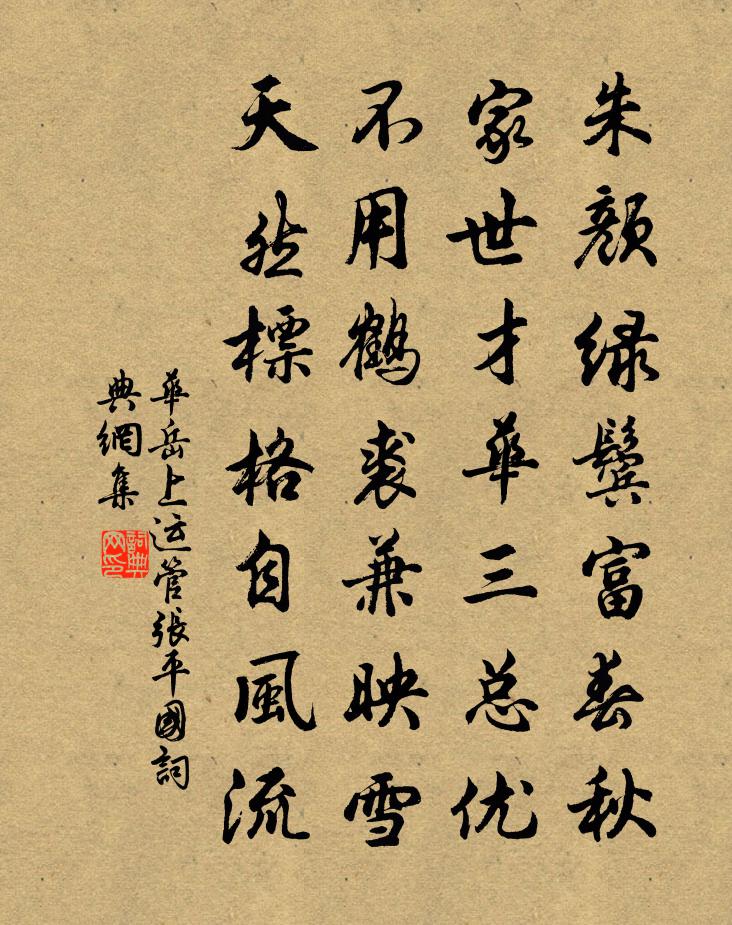 朱顔緑鬓富春秋
家世才華三总优
不用鶴裘兼映雪
天然標格自風流
華岳上运管張平國詞
典網集
詞典
网印